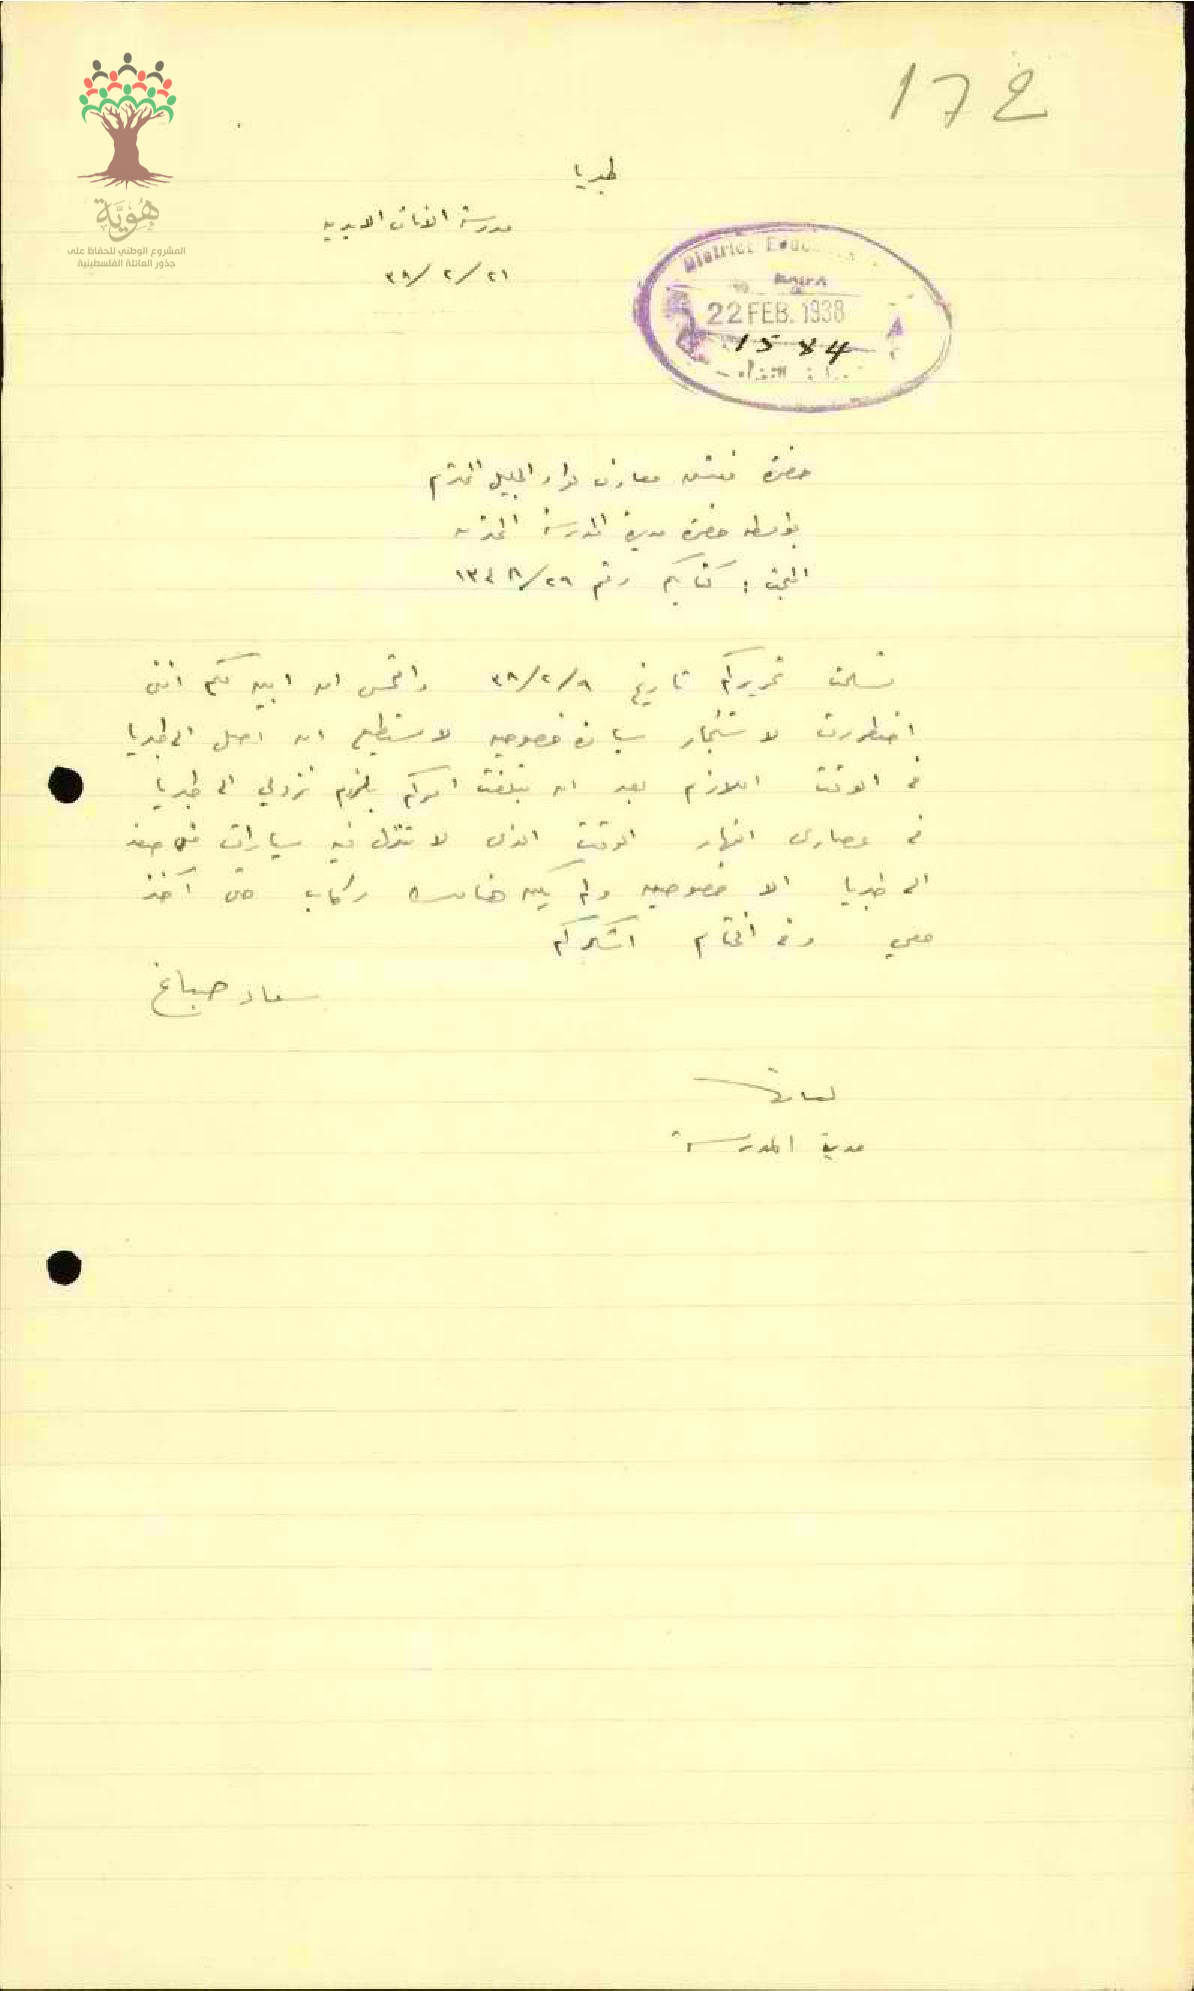 172
هُوِيَّة
المشروع الوطني للحفاظ على
جذور العائلة الفلسطينية
طبريا
مدرسة الاناث الاميرية
٣٨/٢/٢١
District Educ
22 FEB. 1938
1584
حضرة مفتش معارف لواء الجليل المحترم
بواسطة حضرة مديرة المدرسة المحترمه
البحث : كتابكم رقم
تسلمت تحريركم تاريخ ٣٨/٢/٩ والتمس ان ابين لكم انني
اضطررت لاستئجار سيارة خصوصيه لاستطيع ان اصل الى طبريا
في الوقت اللازم بعد ان تبلغت امركم بلزوم نزولي الى طبريا
في عصارى النهار الوقت الذي لا تنزل فيه سيارات من صفد
الى طبريا الا خصوصيه ولم يكن هنالك ركاب حتى آخذ
معي وفي الختام اشكركم
سعاد صباغ
مديرة المدرسة